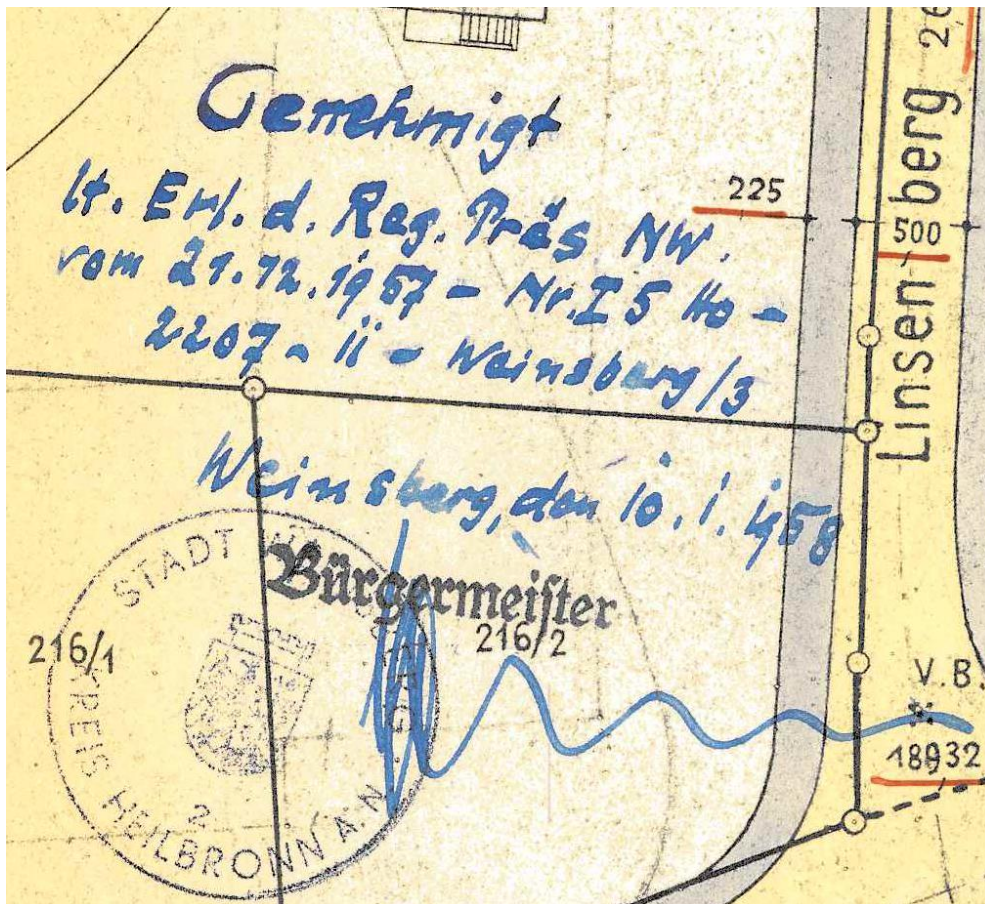 Genehmigt
lt. Erl. d. Reg. Präs NW.
vom 21.12.1957 - Nr. I 5 Ho -
2207 - ii - Weinsberg/3
Weinsberg, den 10. 1. 1958
Bürgermeister
STADT WEINSBERG
KREIS HEILBRONN A. N.
2
216/1
216/2
225
500
Linsenberg
V.B.